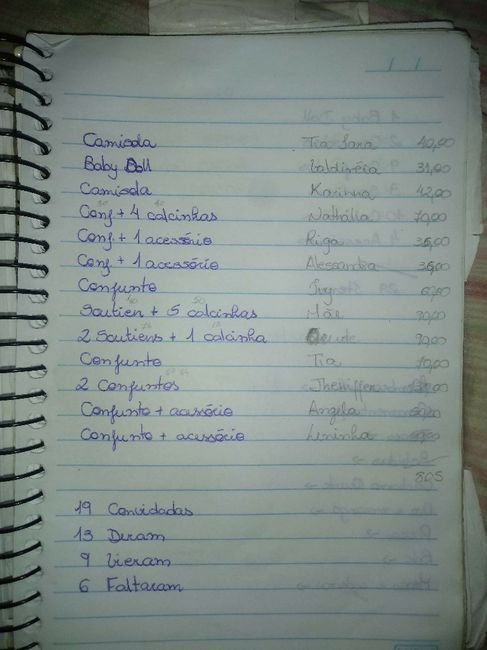 Camisola Tia Sara 40,00
Baby Doll Valdizéia 31,00
Camisola Karinna 42,00
Conj + 4 calcinhas Nathália 70,00
Conj + 1 acessório Riga
Conj + 1 acessório Alessandra
Conjunto
Soutien + 5 calcinhas Mãe 90,00
2 Soutiens + 1 calcinha 90,00
Conjunto Tia 70,00
2 Conjuntos Jheniffer
Conjunto + acessório Angela
Conjunto + acessório Lininha
805
19 Convidadas
13 Deram
9 Vieram
6 Faltaram